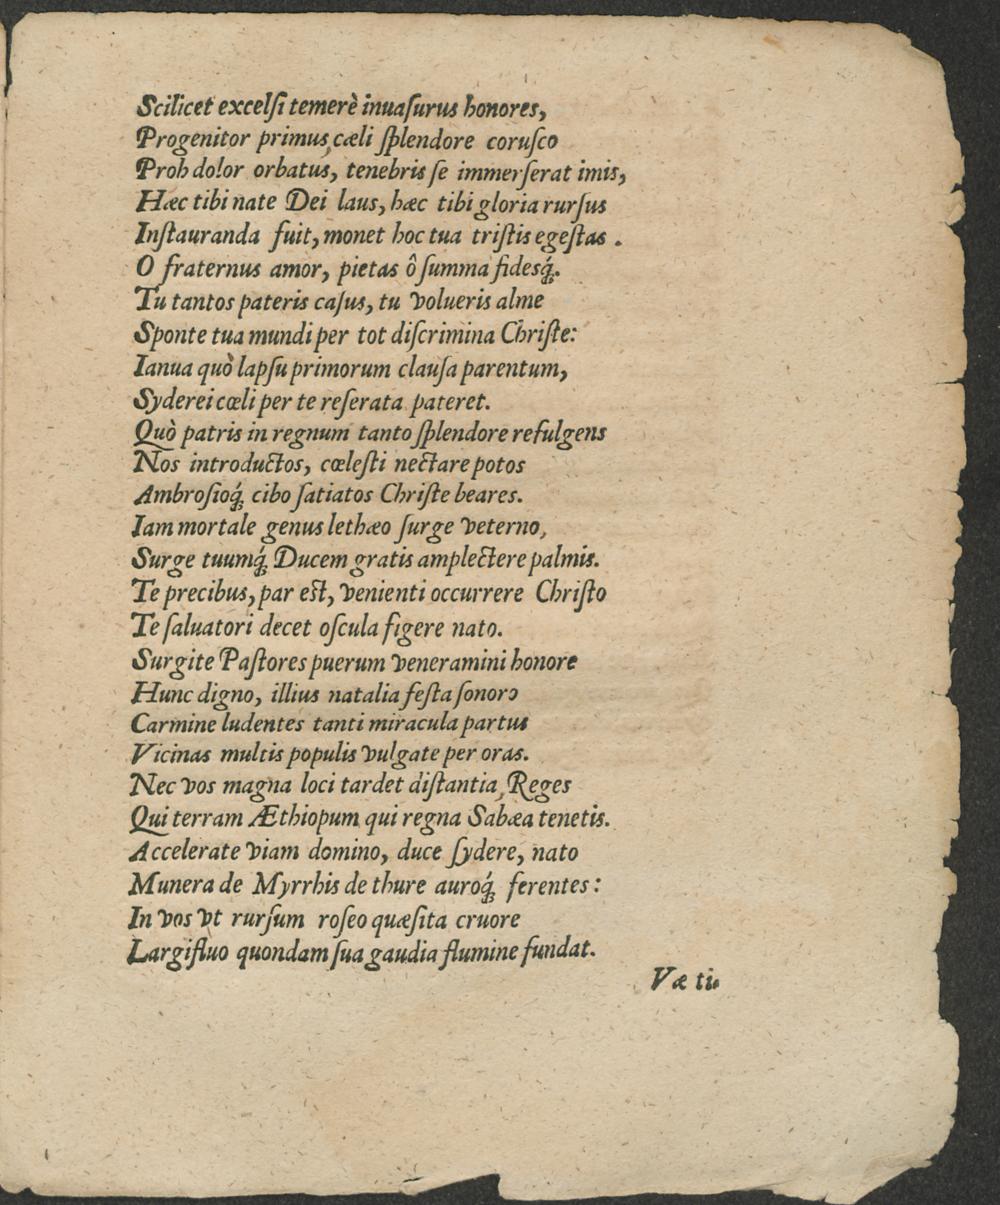 Scilicet excelſi temerè inuaſurus honores,
Progenitor primus, cæli ſplendore coruſco
Proh dolor orbatus, tenebris ſe immerſerat imis,
Hæc tibi nate Dei laus, hæc tibi gloria rurſus
Inſtauranda fuit, monet hoc tua triſtis egeſtas.
O fraternus amor, pietas ô ſumma fidesq́;.
Tu tantos pateris caſus, tu volueris alme
Sponte tua mundi per tot diſcrimina Chriſte:
Ianua quò lapſu primorum clauſa parentum,
Syderei cœli per te reſerata pateret.
Quò patris in regnum tanto ſplendore refulgens
Nos introductos, cœleſti nectare potos
Ambroſioq́; cibo ſatiatos Chriſte beares.
Iam mortale genus lethæo ſurge veterno,
Surge tuumq́; Ducem gratis amplectere palmis.
Te precibus, par eſt, venienti occurrere Chriſto
Te ſaluatori decet oſcula figere nato.
Surgite Paſtores puerum veneramini honore
Hunc digno, illius natalia feſta ſonoro
Carmine ludentes tanti miracula partus
Vicinas multis populis vulgate per oras.
Nec vos magna loci tardet diſtantia, Reges
Qui terram Æthiopum qui regna Sabæa tenetis.
Accelerate viam domino, duce ſydere, nato
Munera de Myrrhis de thure auroq́; ferentes:
In vos vt rurſum roſeo quæſita cruore
Largifluo quondam ſua gaudia flumine fundat.
Væ ti-